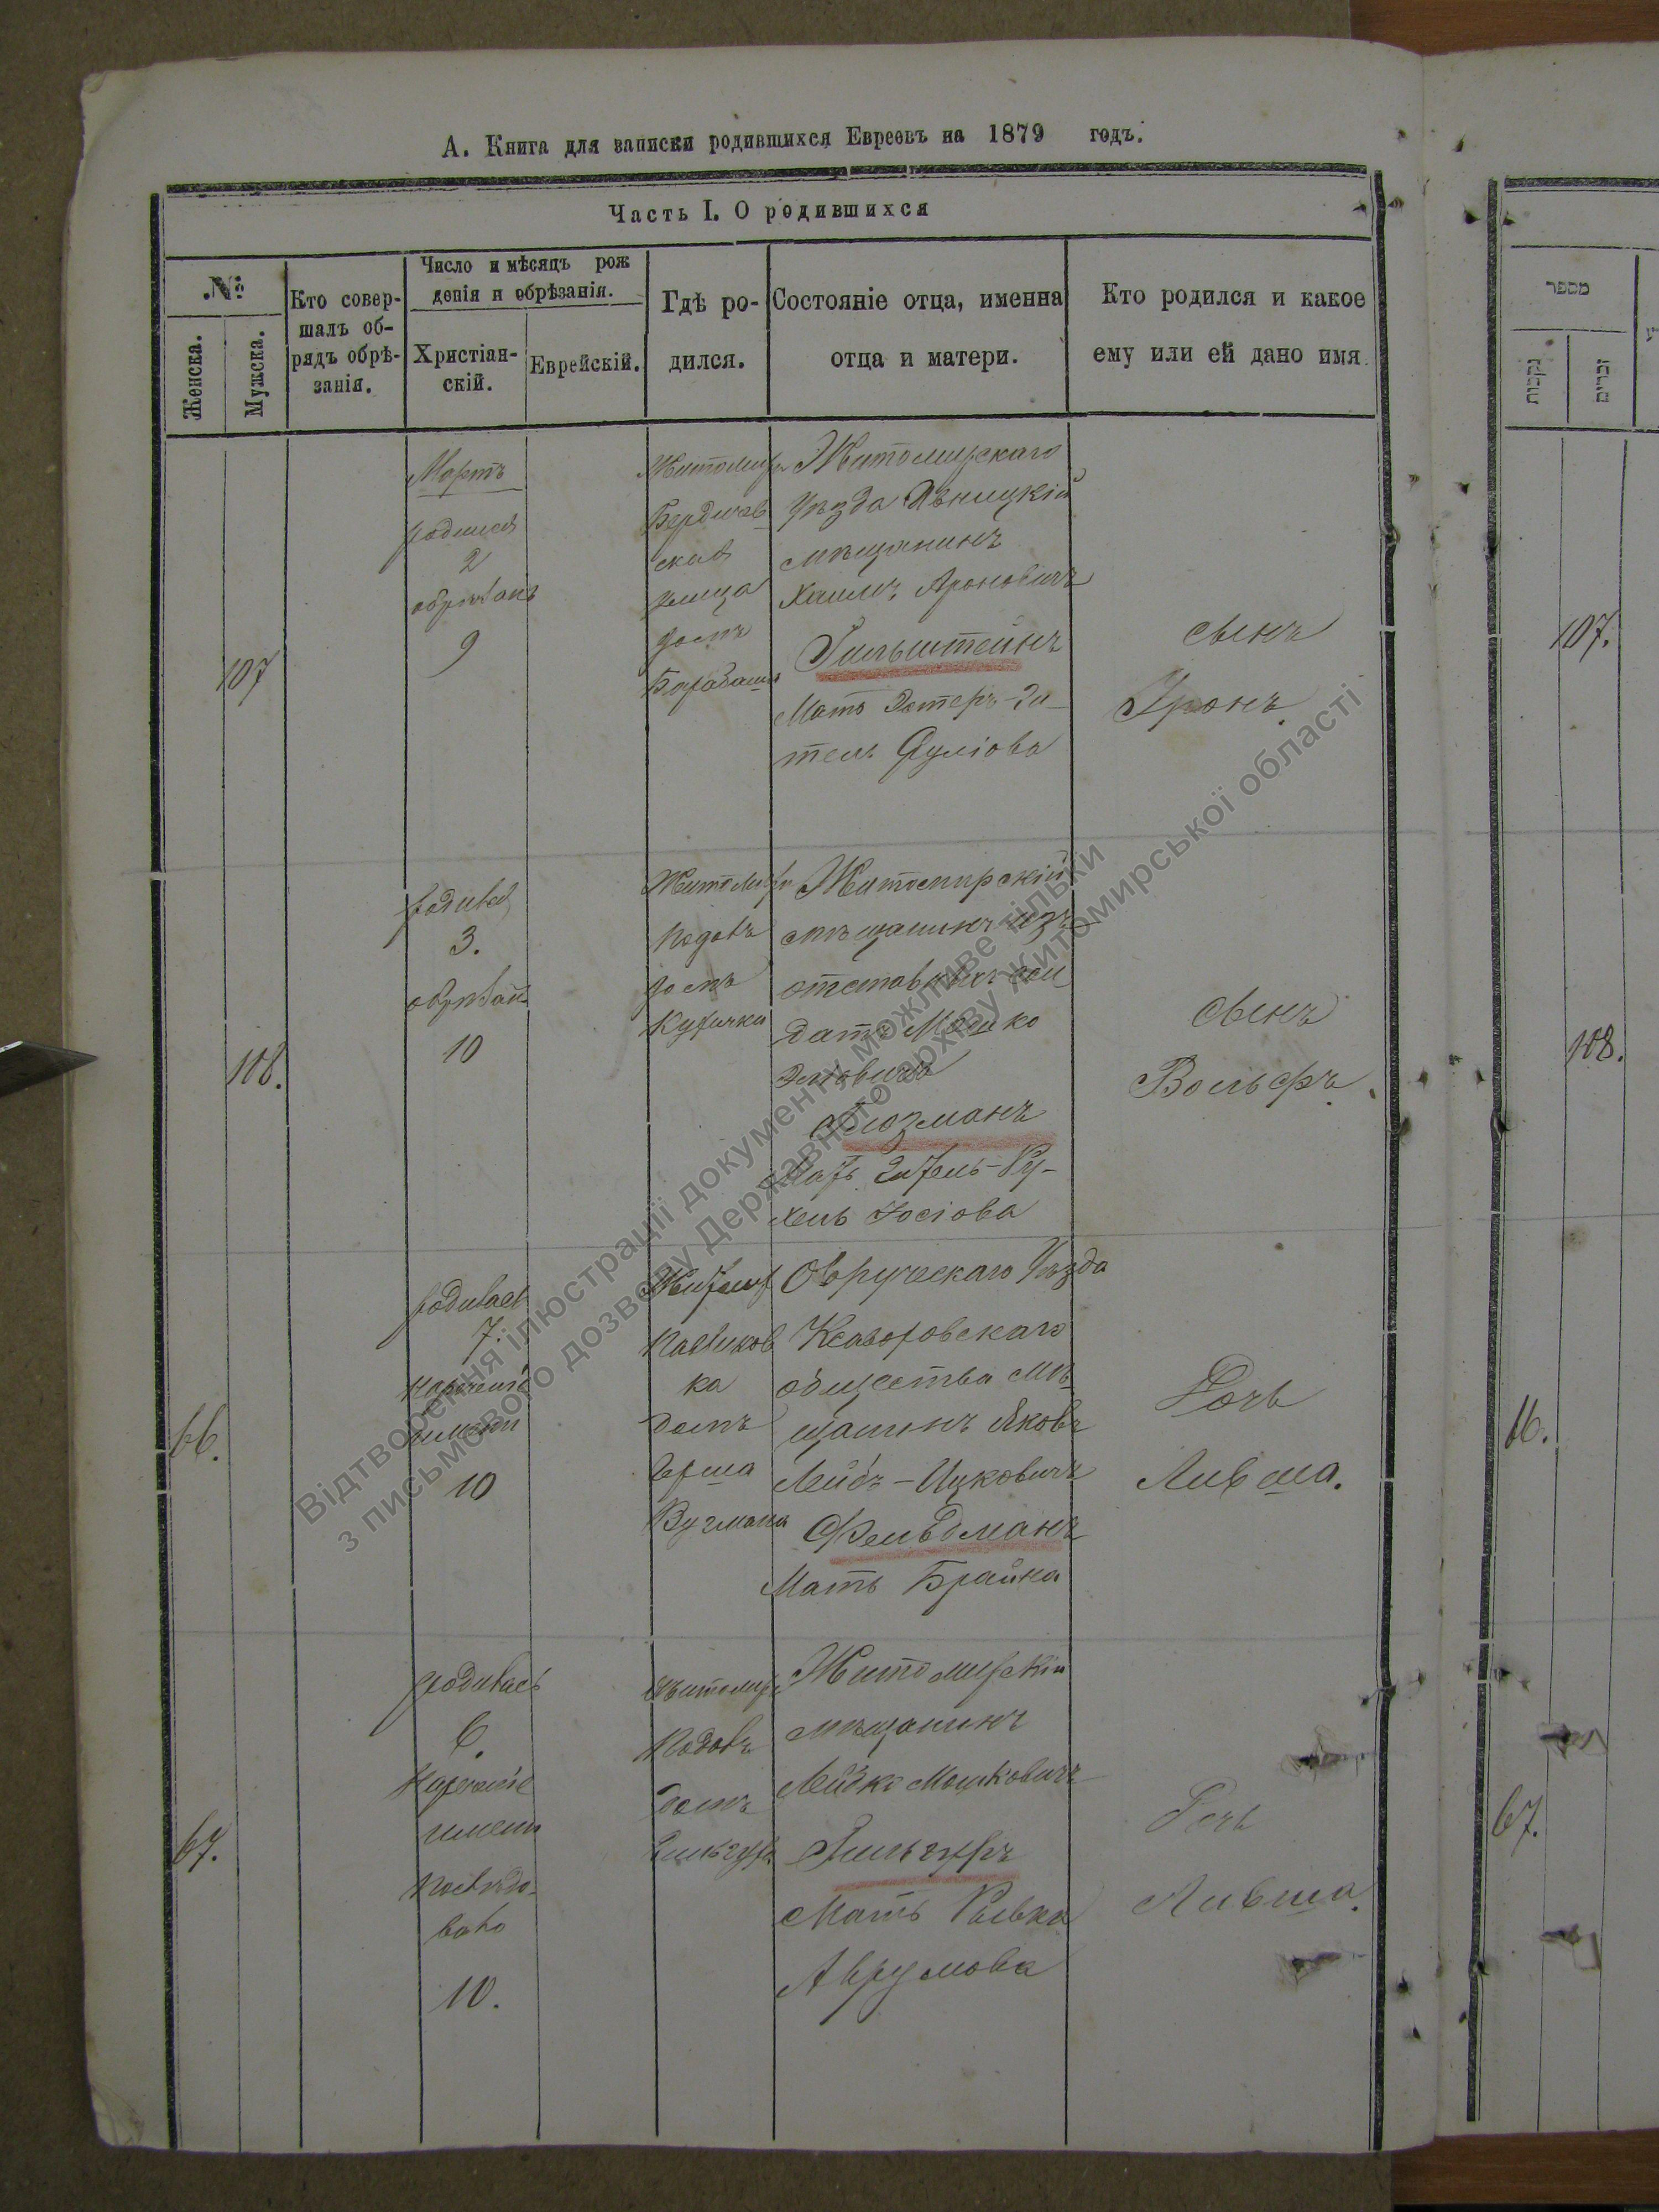 А. Книга для записки родившихся Евреевъ на 1879 годъ.
Часть I. О родившихся
№
Женска.
Мужска.
Кто совер-
шалъ об-
рядъ обрѣ-
занія.
Число и мѣсяцъ рож
денія и обрѣзанія.
Христіан-
скій.
Еврейскій.
Гдѣ ро-
дился.
Состояніе отца, именна
отца и матери.
Кто родился и какое
ему или ей дано имя.
107
Мартъ
родился
2
обрѣзанъ
9
Житомиръ
Бердичев
ская
улица
домъ
Житомирскаго
Уѣзда
мѣщанинъ
Хаимъ Ароновичъ
Гильштейнъ
Мать Эстеръ-Ги
тель
сынъ
108.
родился
3.
обрѣзан
10
Житомиръ
Подолъ
домъ
Житомирскій
мѣщанинъ изъ
отставныхъ сол
датъ Мошко
Мать
хель Іосіова
сынъ
Вольфъ.
66.
родилась
7.
Нареченіе
имени
10
Житомир
домъ
Герша
Овручскаго Уѣзда
общества мѣ
щанинъ Яковъ
Лейбъ-Ицковичъ
Фельдманъ
Мать Брайна
Дочь
Ливша.
67.
родилась
6.
Нареченіе
имени
послѣдо-
вало
10.
Житомиръ
Подолъ
домъ
Житомирскій
мѣщанинъ
Лейбко Мошковичъ
Мать Ривка
Аврумова
Дочь
Ливша.
מספר
נקבות
זכרים
107.
108.
66.
67.
Відтворення ілюстрації документу можливе тільки
з письмового дозволу Державного архіву Житомирської області